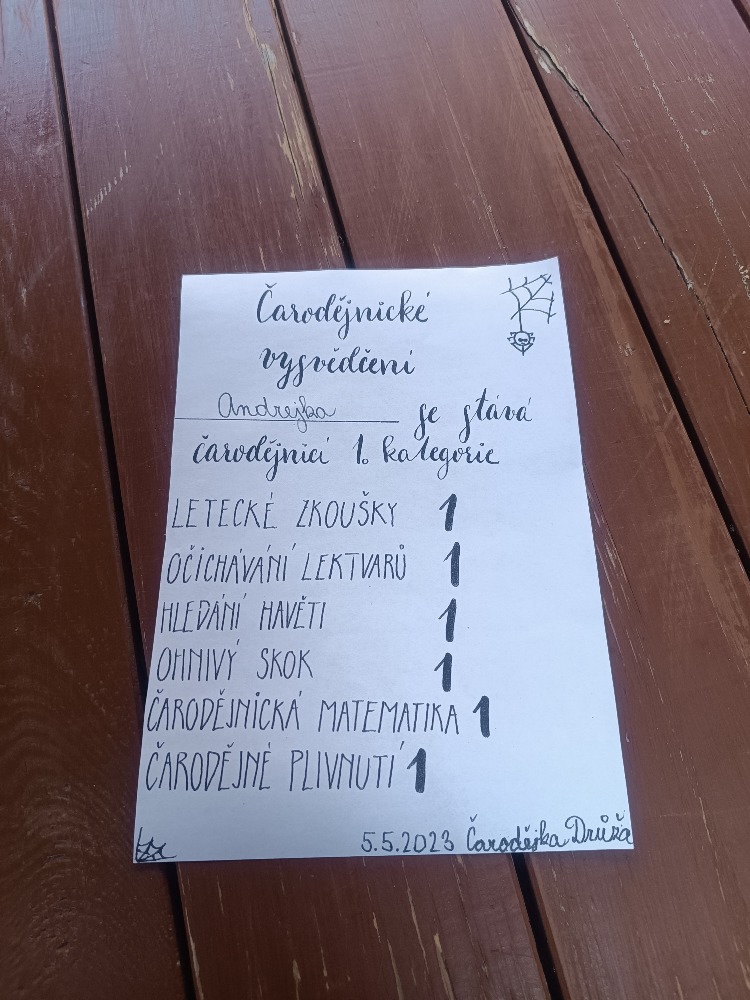 Čarodějnické
vysvědčení
Andrejka se stává
čarodějnicí 1. kategorie
LETECKÉ ZKOUŠKY 1
OČICHÁVÁNÍ LEKTVARŮ 1
HLEDÁNÍ HAVĚTI 1
OHNIVÝ SKOK 1
ČARODĚJNICKÁ MATEMATIKA 1
ČARODĚJNÉ PLIVNUTÍ 1
5.5.2023 Čarodějka Drůža